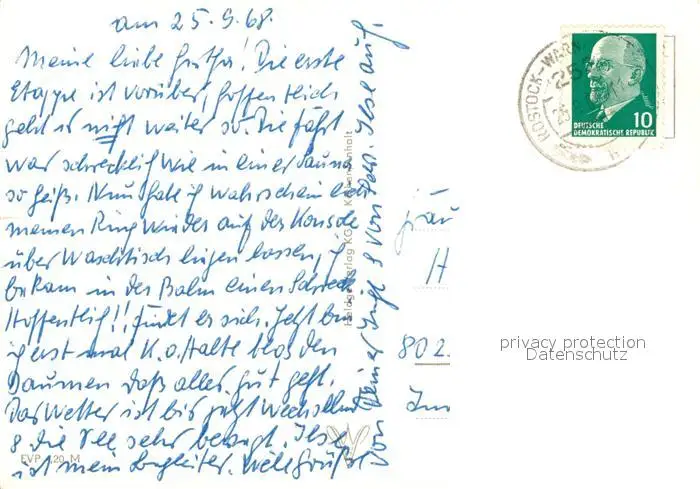 am 25.9.68.
Meine liebe ! Die erste
Etappe ist vorüber, hoffentlich
geht es nicht weiter so. Die Fahrt
war schrecklich wie in einer Sauna
so heiß. Nun habe ich wahrscheinlich
meinen Ring wieder auf der Konsole
über Waschtisch liegen lassen,
bekam in der Bahn einen Schreck
Hoffentlich!! findet er sich. Jetzt bin
ich erst mal K.o. Halte blos den
Daumen daß alles gut geht.
Das Wetter ist bis jetzt wechselnd
& die See sehr bewegt. Ilse
ist mein Begleiter. Viele Grüße
von Deiner & von Ilse auf.
Frau
H
802.
Im
ROSTOCK-WARN
25
10
DEUTSCHE
DEMOKRATISCHE REPUBLIK
Verlag KG Köthen Anhalt
EVP 0,20 M
privacy protection
Datenschutz